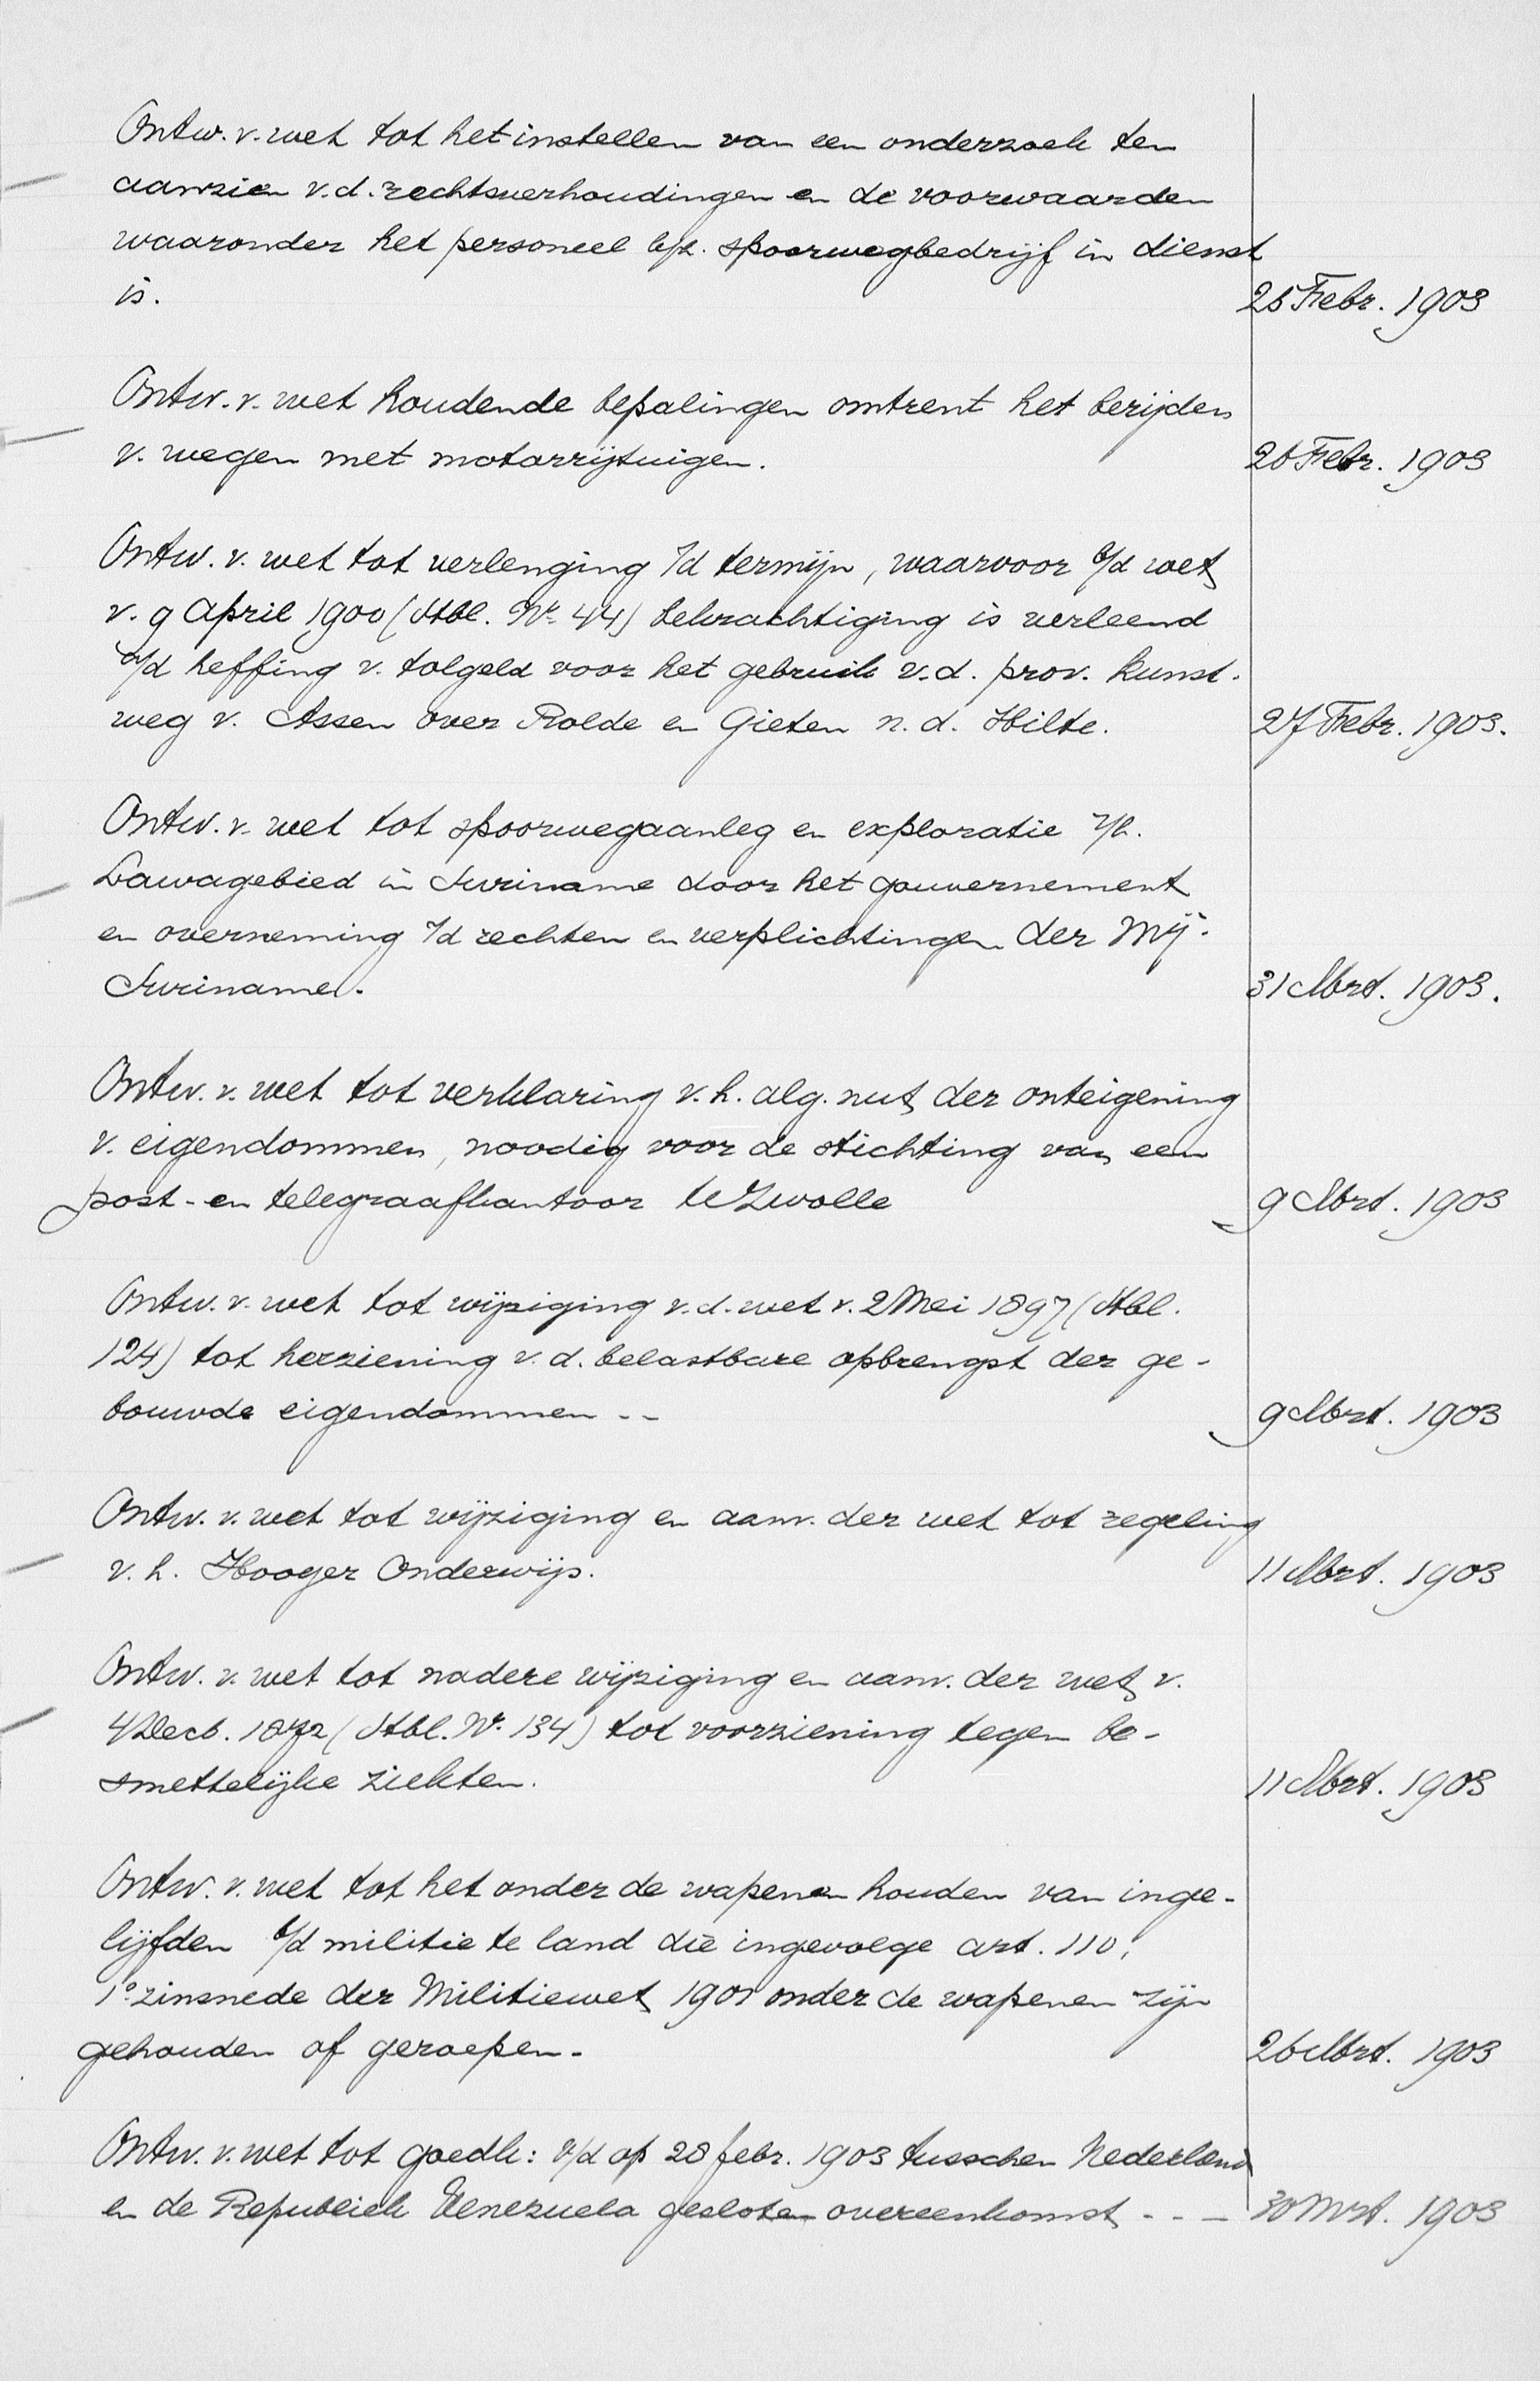 Ontw. v. wet tot het instellen van een onderzoek ten
aanzien v.d. rechtsverhoudingen en de voorwaarden
waaronder het personeel b/h. spoorwegbedrijf in dienst
is. 25 Febr. 1903
Ontw. v. wet houdende bepalingen omtrent het berijden
v. wegen met motorrijtuigen. 26 Febr. 1903
Ontw. v. wet tot verlenging v/d termijn, waarvoor b/d wet
v. 9 April 1900 (Stbl. No. 44) bekrachtiging is verleend
a/d heffing v. tolgeld voor het gebruik v.d. prov. kunst-
weg v. Assen over Rolde en Gieten n. d. Hilte. 27 Febr. 1903.
Ontw. v. wet tot spoorwegaanleg en exploratie i/h.
Lawagebied in Suriname door het gouvernement
en overneming v/d rechten en verplichtingen der Mij.
Suriname. 31 Mrt. 1903.
Ontw. v. wet tot verklaring v. h. alg. nut der onteigening
v. eigendommen, noodig voor de stichting van een
post- en telegraafkantoor te Zwolle 9 Mrt. 1903
Ontw. v. wet tot wijziging v. d. wet v. 2 Mei 1897 (Stbl.
124) tot herziening v. d. belastbare opbrengst der ge-
bouwde eigendommen -- 9 Mrt. 1903
Ontw. v. wet tot wijziging en aanv. der wet tot regeling
v. h. Hooger Onderwijs. 11 Mrt. 1903
Ontw. v. wet tot nadere wijziging en aanv. der wet v.
4 Decb. 1872 (Stbl. No. 134) tot voorziening tegen be-
smettelijke ziekten. 11 Mrt. 1903
Ontw. v. wet tot het onder de wapenen houden van inge-
lijfden b/d militie te land die ingevolge art. 110,
1e zinsnede der Militiewet 1901 onder de wapenen zijn
gehouden of geroepen. 26 Mrt. 1903
Ontw. v. wet tot goedk: v/d op 28 febr. 1903 tusschen Nederland
en de Republiek Venezuela gesloten overeenkomst - - - 30 Mrt. 1903